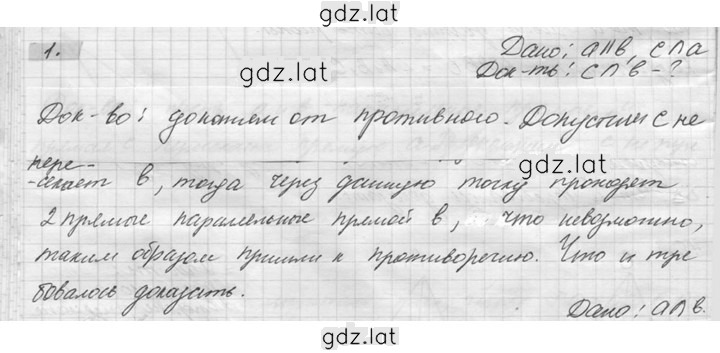 gdz.lat
1.
Дано: а∩в, с∩а
gdz.lat
Док-ть: с∩в-?
Док-во: докажем от противного. Допустим с не
пере-
-секает в, тогда через данную точку проходят
2 прямые параллельные прямой в, что невозможно,
gdz.lat
таким образом пришли к противоречию. Что и тре
бовалось доказать.
Дано: а∩в.
gdz.lat